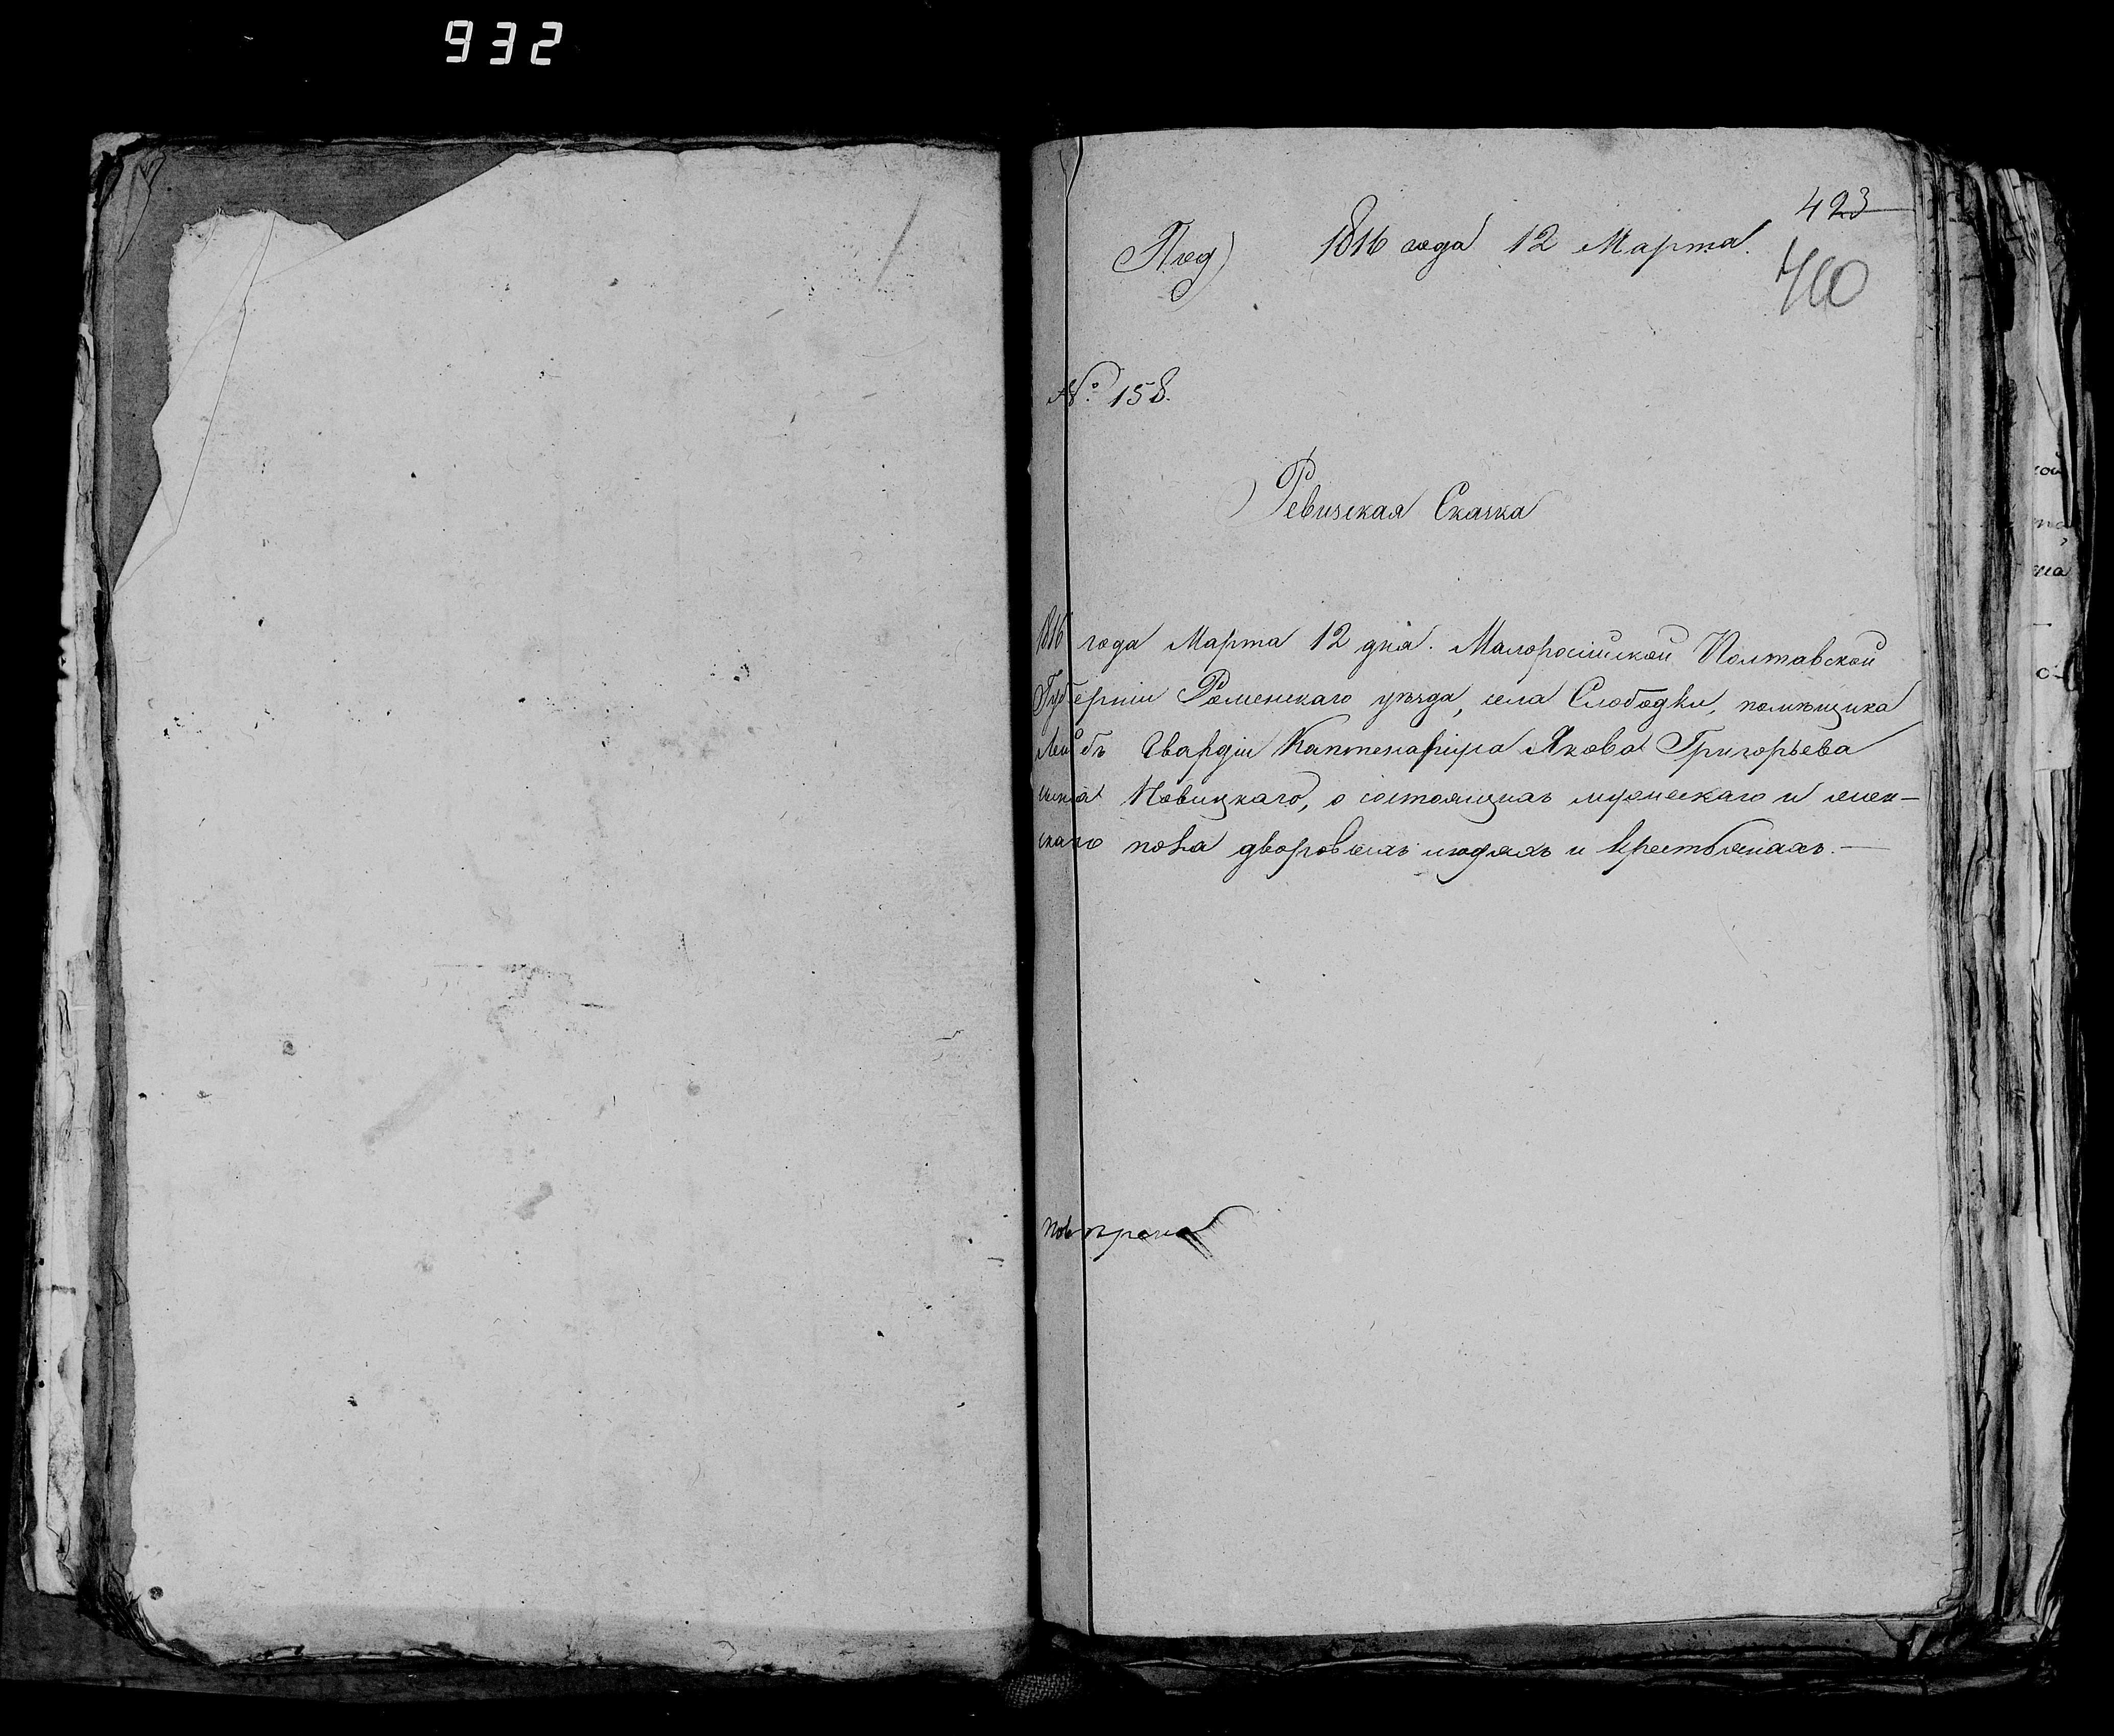 932
423
Под) 1816 года 12 Марта.
460
№ 158.
Ревизская Сказка
1816 года Марта 12 дня. Малоросійской Полтавской
Губерніи Роменскаго уѣзда, села Слободки, помѣщика
Лейбъ Гвардіи Каптенармуса Якова Григорьева
сына Новицкаго, о состоящихъ мужескаго и жен-
скаго пола дворовыхъ людяхъ и крестьянахъ.—
повѣрена